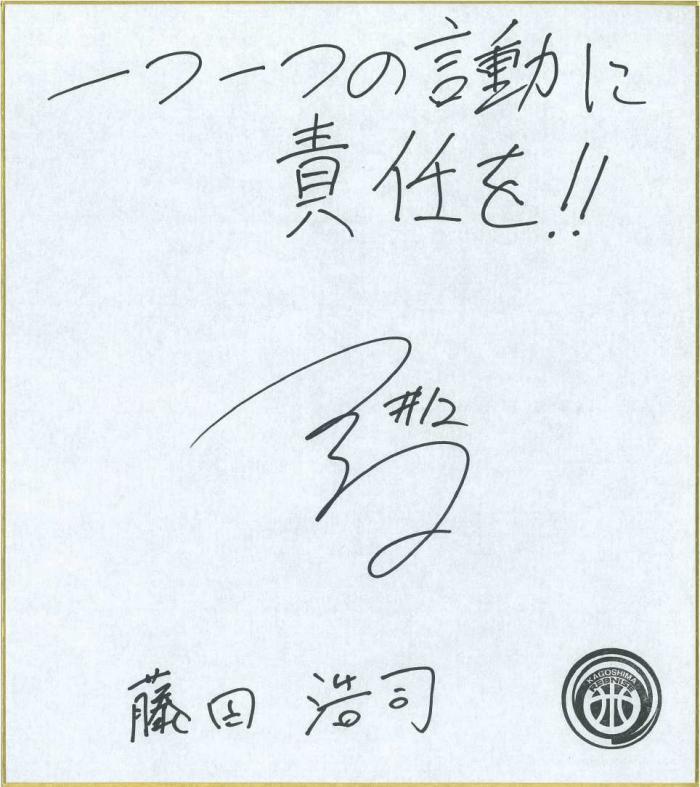 一つ一つの言動に
責任を!!
#12
藤田 浩司
KAGOSHIMA
REBNISE